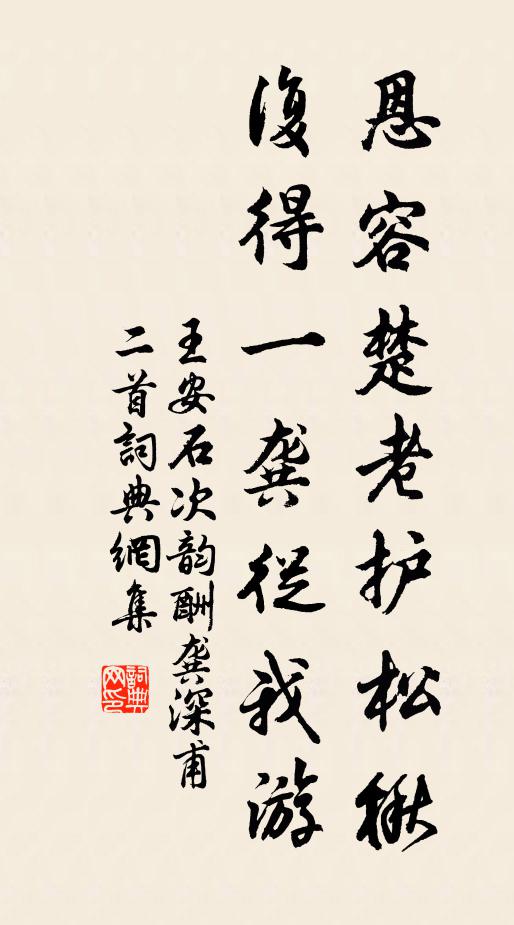 恩容楚老护松楸
復得一龚從我游
王安石次韵酬龚深甫
二首詞典網集
詞典网印